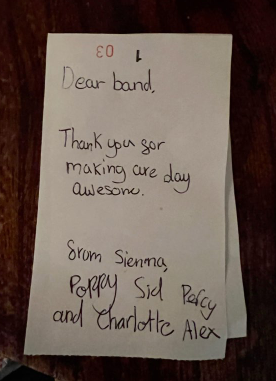 03 1
Dear band,
Thank you sor
making are day
awesome.
Srom Sienna,
Poppy Sid Percy
and Charlotte Alex